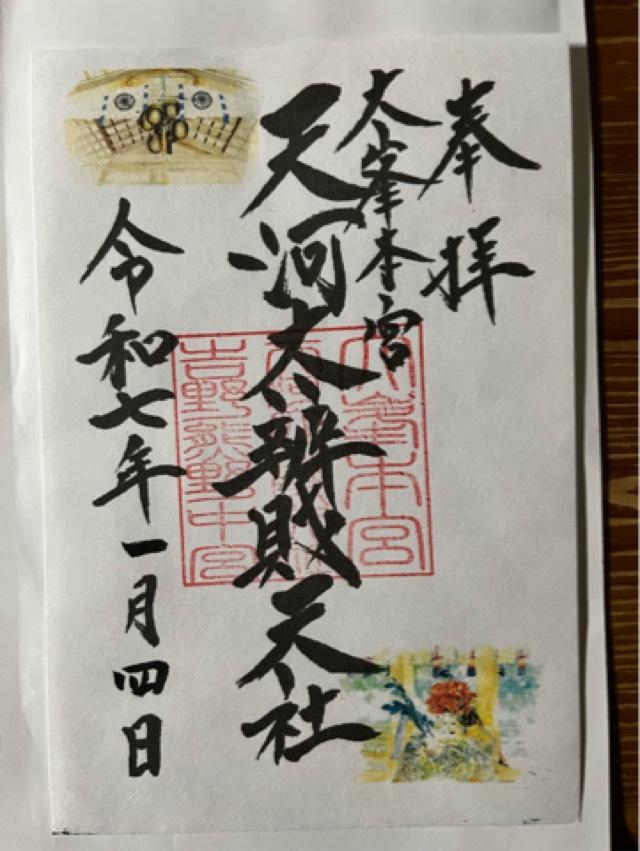 奉拝
大峯本宮
天河大辨財天社
令和七年一月四日
大峯本宮
吉野熊野中宮